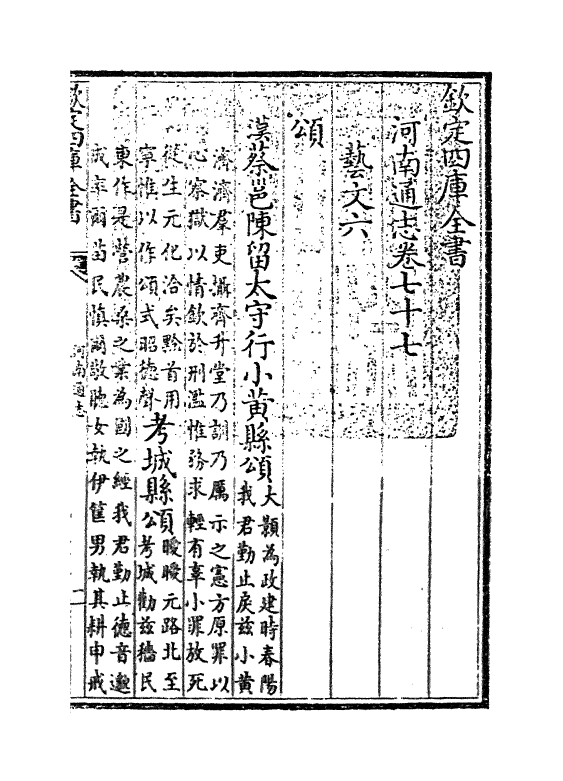 欽定四庫全書
河南通志卷七十七
藝文六
頌
漢蔡邕陳留太守行小黃縣頌大顥為政建時春陽
我君勤止戾兹小黃
濟濟羣吏攝齊升堂乃訓乃厲示之憲方原罪以
心察獄以情欽於刑濫惟務求輕有辜小罪放死
從生元化洽矣黔首用
寧惟以作頌式昭德聲
考城縣頌曖曖元路北至
考城勸兹穡民
東作是營農桑之業為國之經我君勤止德音邈
成率爾苗民慎爾敬聽女執伊筐男執其耕申戒
欽定四庫全書
河南通志